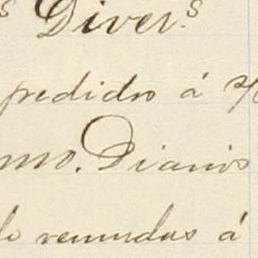 s Divers.
pedidro á
mo. Diario
do remudas á